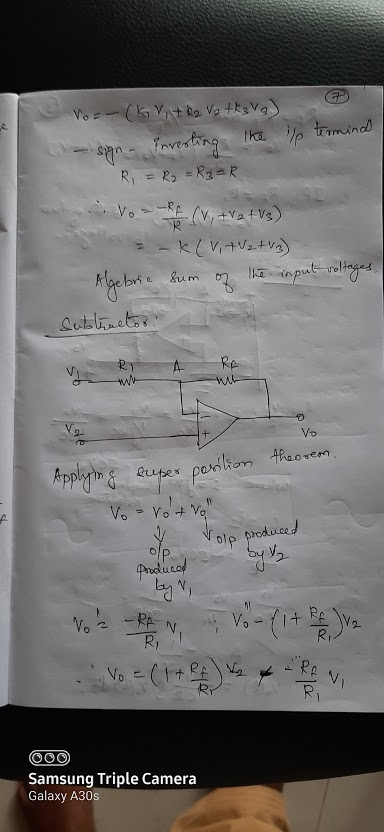 7
V₀ = - (K₁V₁ + K₂V₂ + K₃V₃)
- sign - inverting the i/p terminal
R₁ = R₂ = R₃ = R
∴ V₀ = -Rf/R (V₁ + V₂ + V₃)
= - K (V₁ + V₂ + V₃)
Algebric sum of the input voltages
Subtractor:
V₁ R₁ A Rf
-
V₂ +
V₀
Applying super position theorem.
V₀ = V₀' + V₀"
↓ ↓ o/p produced
o/p by V₂
produced
by V₁
V₀' = -Rf/R₁ V₁ ; V₀" - (1 + Rf/R₁) V₂
∴ V₀ = (1 + Rf/R₁) V₂ - Rf/R₁ V₁
Samsung Triple Camera
Galaxy A30s